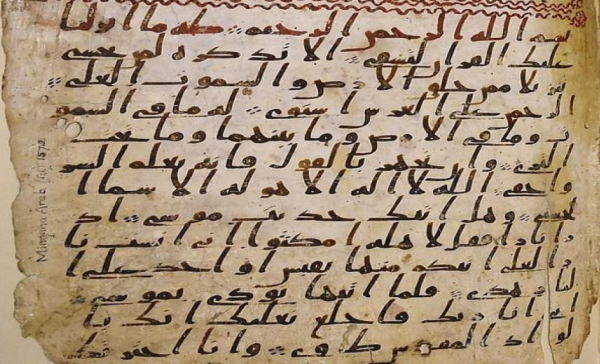 بسم الله الرحمن الرحيم طه ما انزلنا
عليك القران لتشقى الا تذكره لمن يخشى
تنزيلا ممن خلق الارض والسموت العلى
الرحمن على العرش استوى له ما في السمو
ت وما في الارض وما بينهما وما تحت
الثرى وان تجهر بالقول فانه يعلم السر
واخفى الله لا اله الا هو له الاسما ا
لحسنى وهل اتيك حديث موسى اذ
را نارا فقل لاهله امكثوا اني انست نا
را لعلي اتيكم منها بقبس او اجد على ا
لنار هدى فلما اتيها نودي يموسى
اني انا ربك فاخلع نعليك انك با
لواد المقدس طوى وانا اخترتك
Mingana Arab 1572